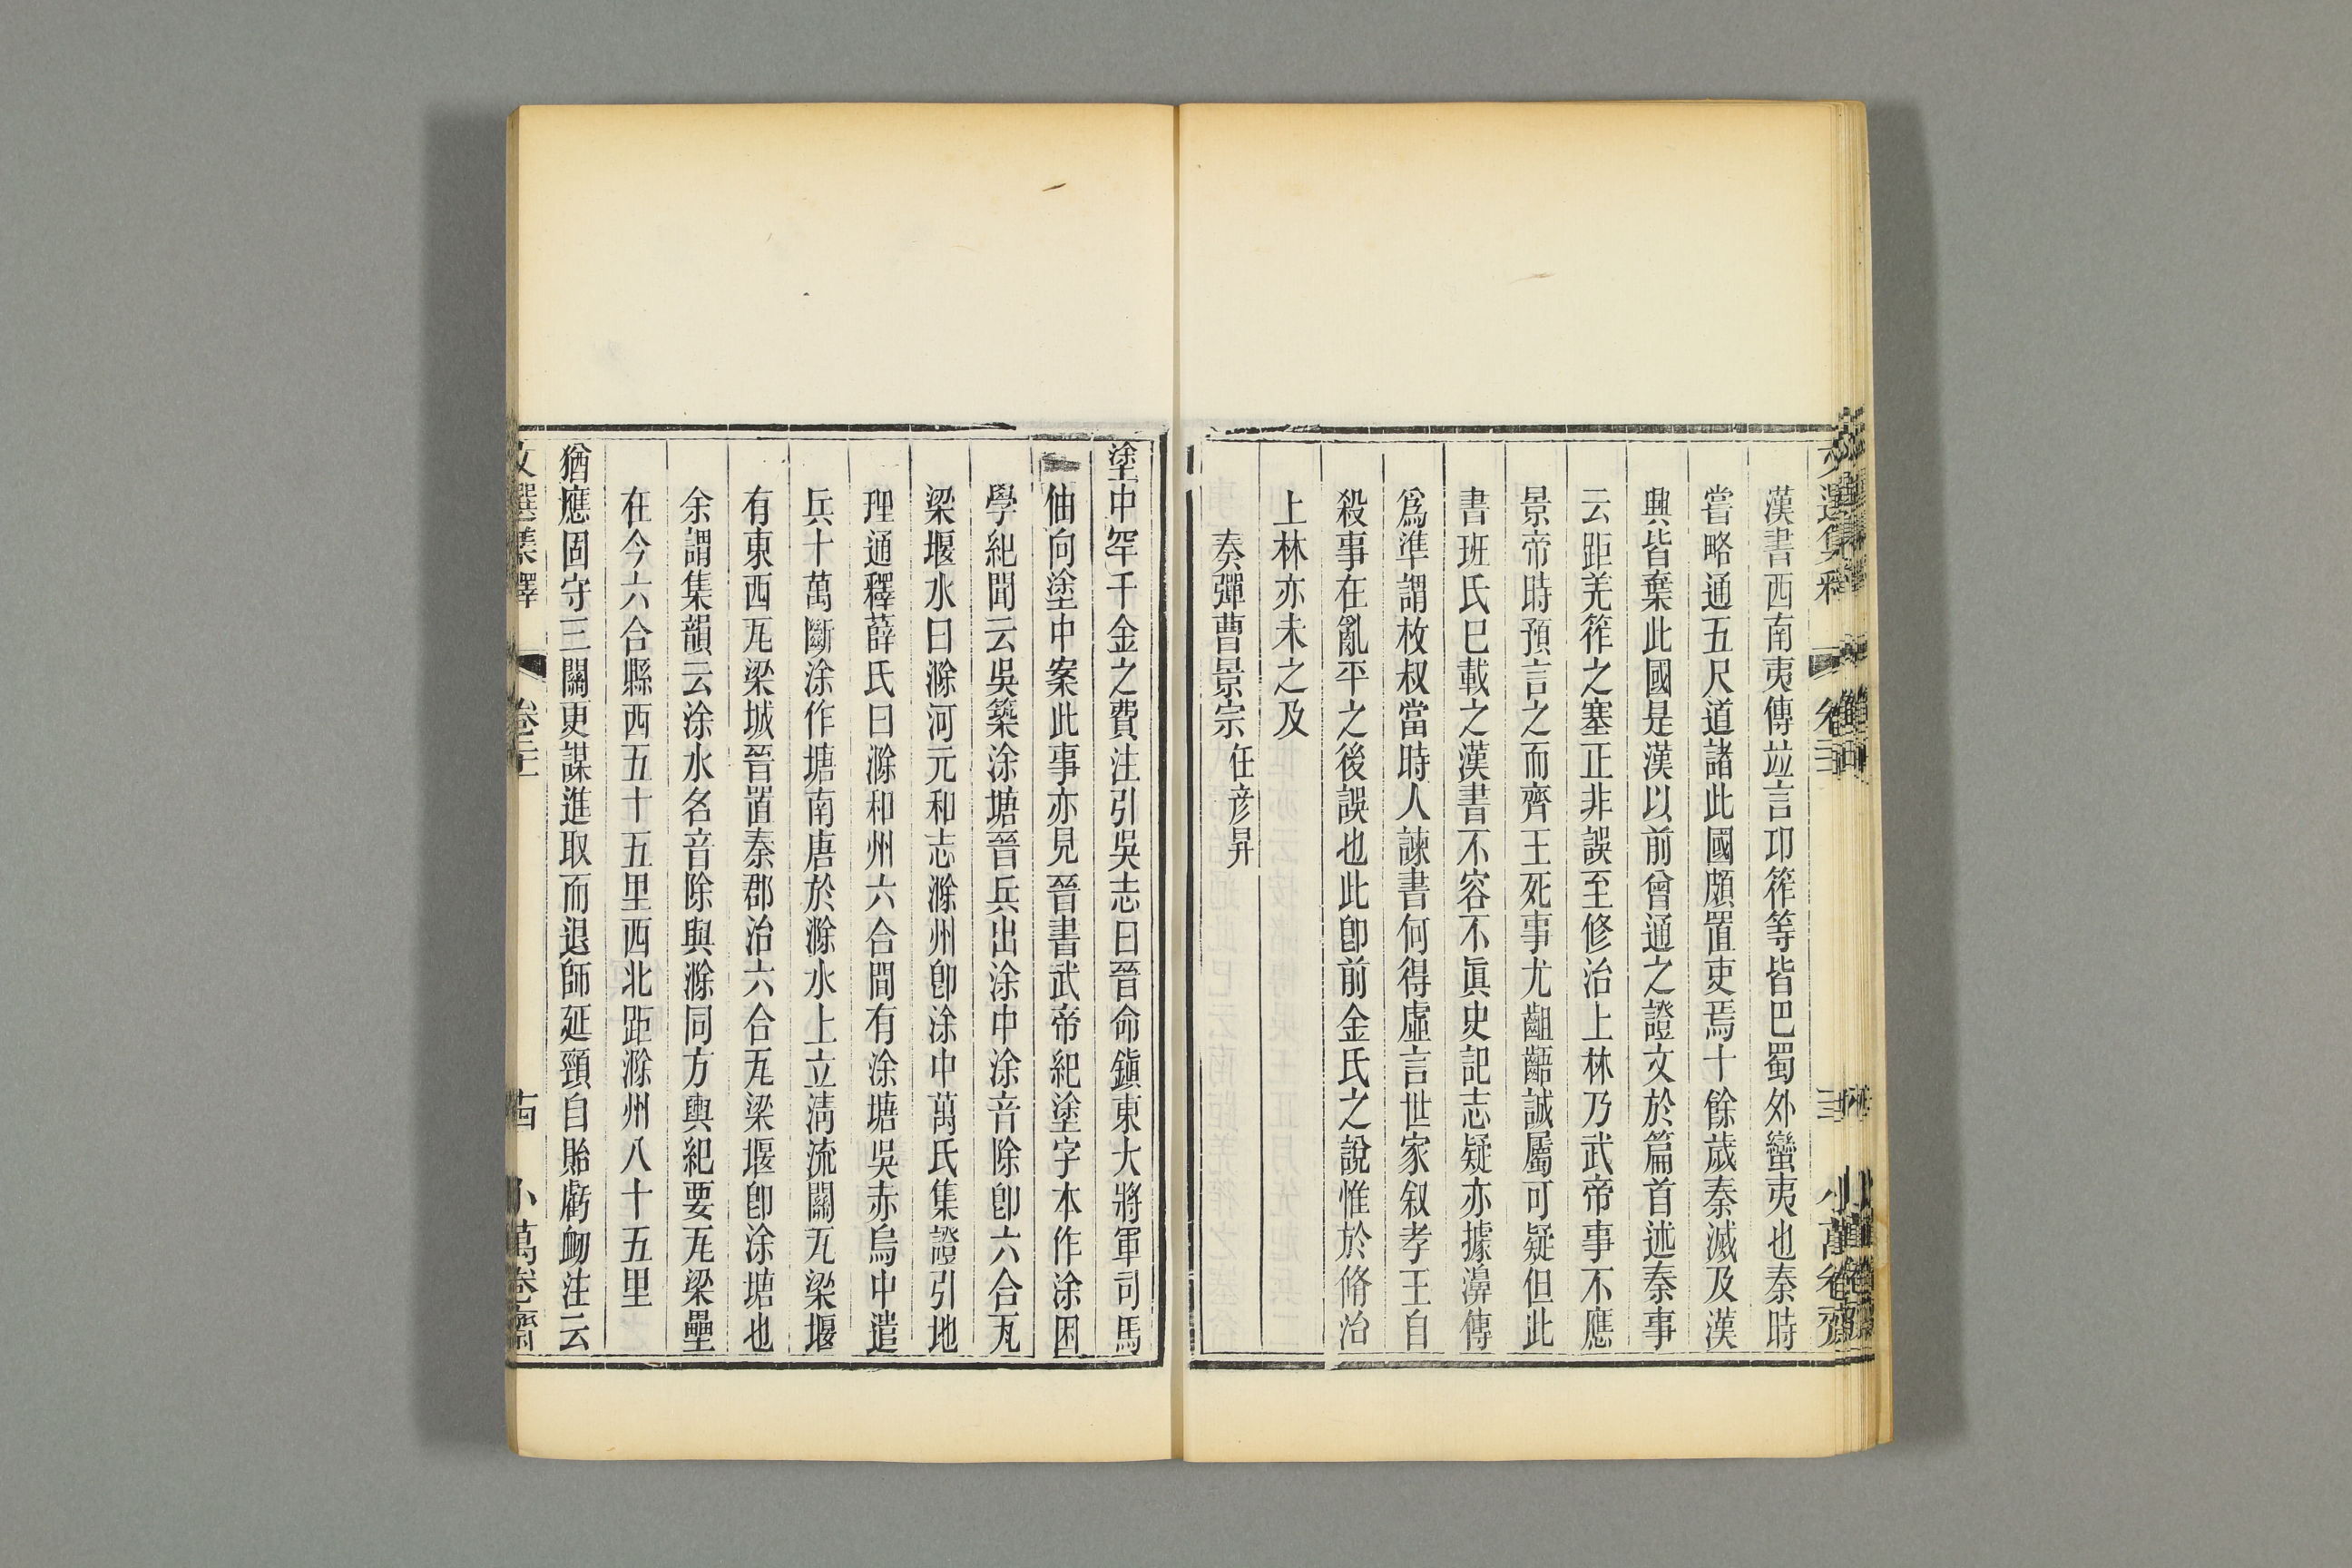 漢書西南夷傳竝言邛筰等皆巴蜀外蠻夷也秦時
嘗略通五尺道諸此國頗置吏焉十餘歲秦滅及漢
興皆棄此國是漢以前曾通之證文於篇首述秦事
云距羌筰之塞正非誤至修治上林乃武帝事不應
景帝時預言之而齊王死事尤齟齬誠屬可疑但此
書班氏已載之漢書不容不眞史記志疑亦據濞傳
爲準謂枚叔當時人諫書何得虛言世家叙孝王自
殺事在亂平之後誤也此卽前金氏之說惟於脩治
上林亦未之及
奏彈曹景宗 任彥昇
塗中罕千金之費注引吳志曰晉命鎭東大將軍司馬
伷向塗中案此事亦見晉書武帝紀塗字本作涂困
學紀聞云吳築涂塘晉兵出涂中涂音除卽六合瓦
梁堰水曰滁河元和志滁州卽涂中萬氏集證引地
理通釋薛氏曰滁和州六合間有涂塘吳赤烏中遣
兵十萬斷涂作塘南唐於滁水上立淸流關瓦梁堰
有東西瓦梁城晉置秦郡治六合瓦梁堰卽涂塘也
余謂集韻云涂水名音除與滁同方輿紀要瓦梁壘
在今六合縣西五十五里西北距滁州八十五里
猶應固守三關更謀進取而退師延頸自貽虧衂注云
文選集釋 卷二十 小萬卷齋